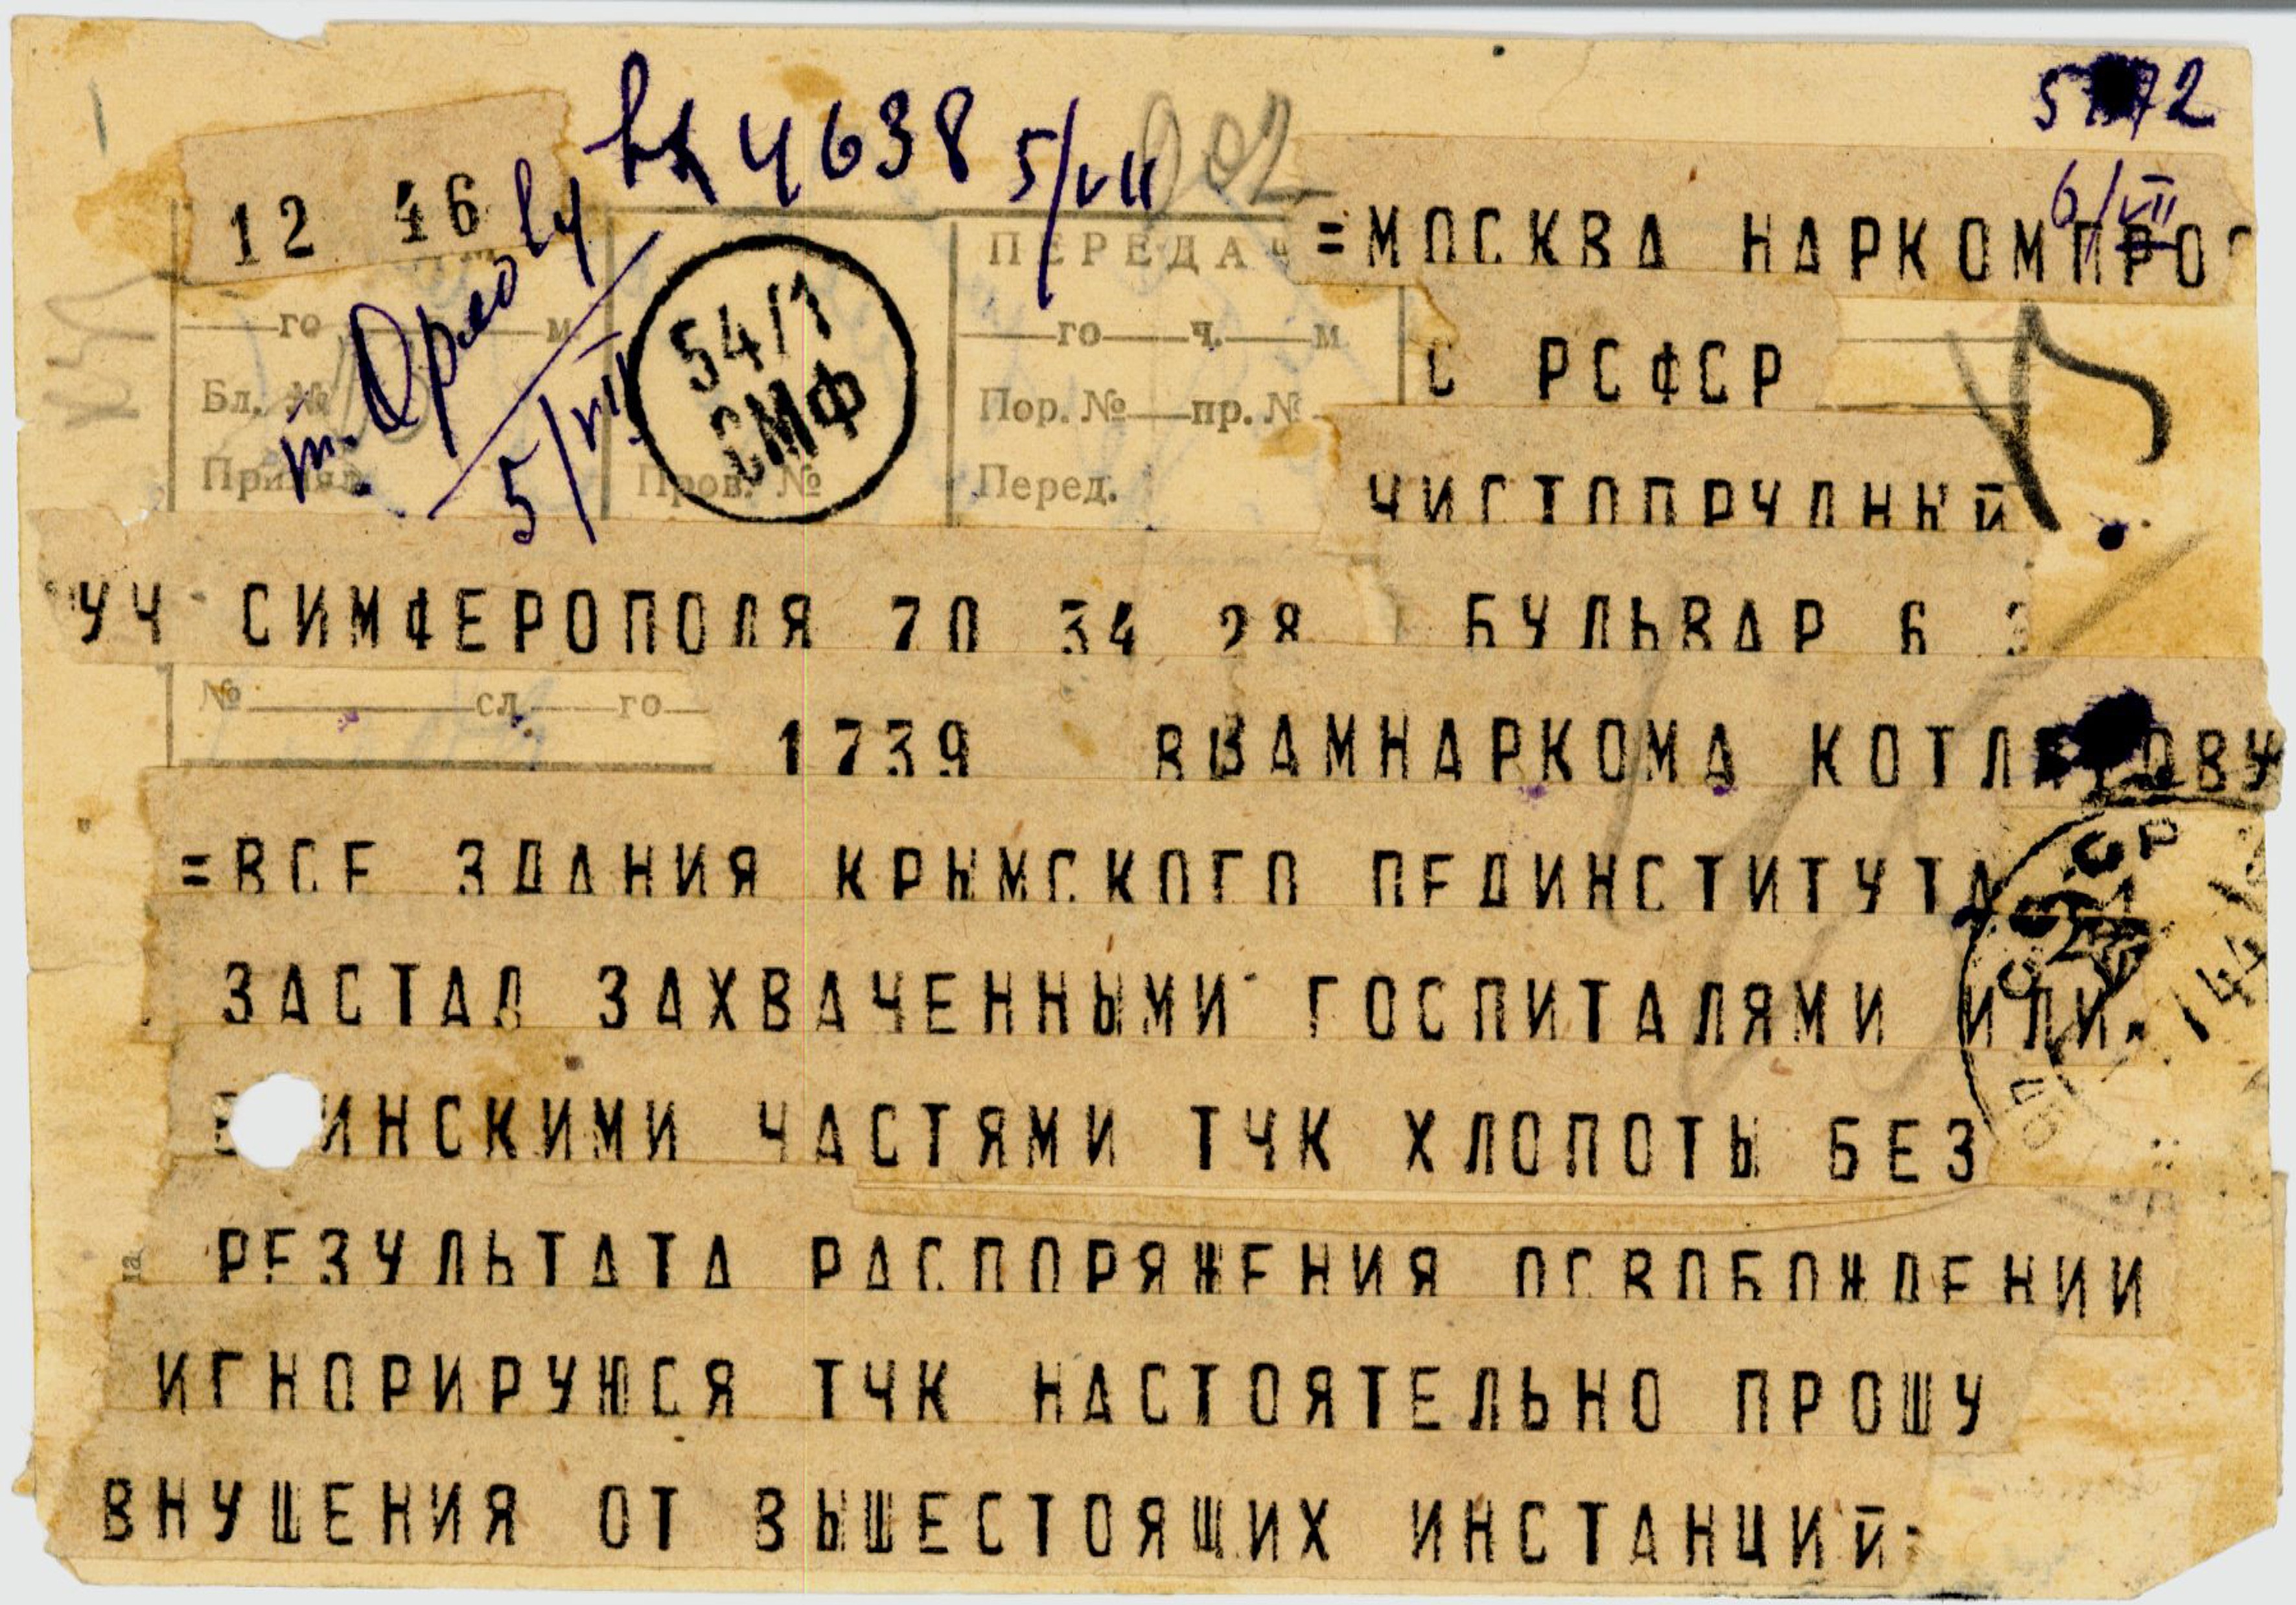 5/VII
6/VII
12 46
4638
=МОСКВА НАРКОМПРОС
С РСФСР
54/1
СМФ
ПЕРЕДАЧ
го м
го ч. м
Бл. №
Пор. № пр. №
т. Орлову
5/VII
Пров. №
Перед.
ЧИСТОПРУДНЫЙ
УЧ СИМФЕРОПОЛЯ 70 34 28
БУЛЬВАР 6
№ сл. го
1739 ЗАМНАРКОМА
=ВСЕ ЗДАНИЯ КРЫМСКОГО ПЕДИНСТИТУТА
ЗАСТАЛ ЗАХВАЧЕННЫМИ ГОСПИТАЛЯМИ ИЛИ
ЧАСТЯМИ ТЧК ХЛОПОТЫ БЕЗ
РЕЗУЛЬТАТА РАСПОРЯЖЕНИЯ ОСВОБОЖДЕНИИ
ИГНОРИРУЮСЯ ТЧК НАСТОЯТЕЛЬНО ПРОШУ
ВНУШЕНИЯ ОТ ВЫШЕСТОЯЩИХ ИНСТАНЦИЙ